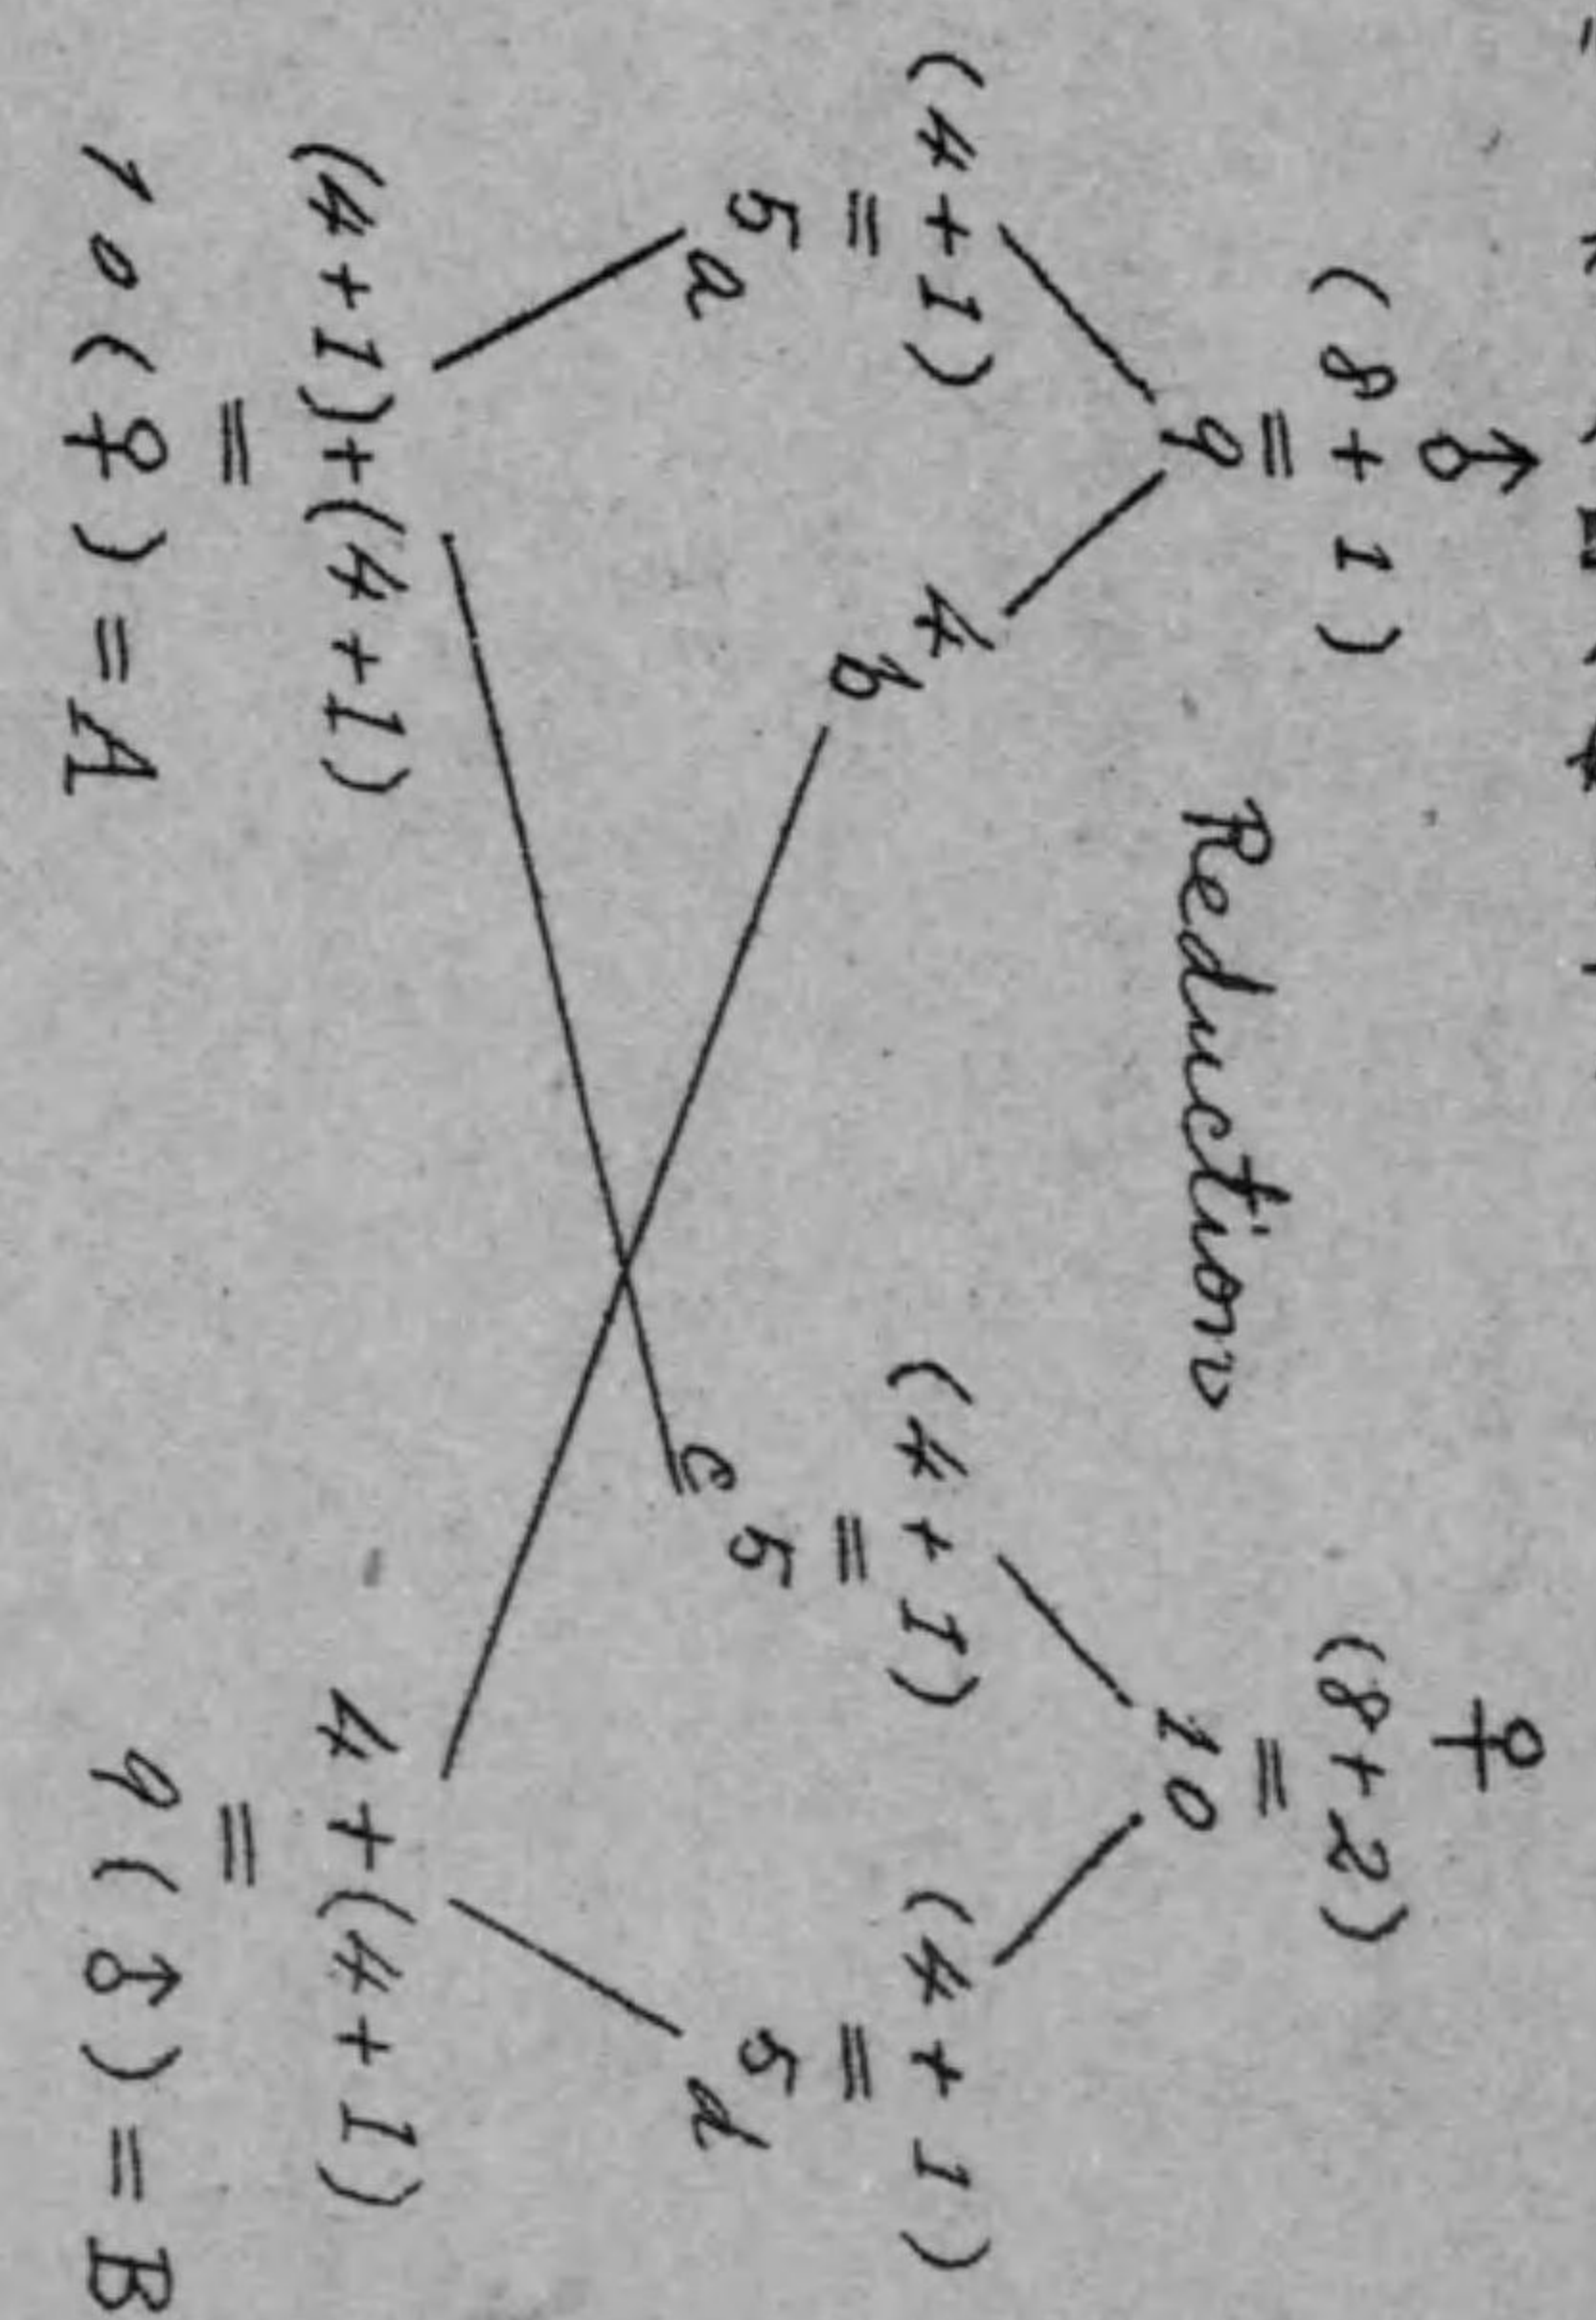 ♂ ♀
(8+1) (8+2)
= =
9 Reduction 10
(4+1) 4 (4+1) (4+1)
= b = =
5 5 5
a c d
(4+1)+(4+1) 4+(4+1)
= =
10(♀)=A 9(♂)=B